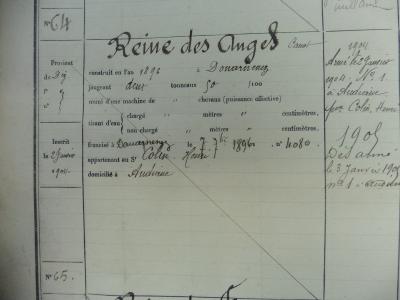 N° 64
Reine des Anges Canot
construit en l'an 1896 à Douarnenez
jaugeant deux tonneaux 50 /100
muni d'une machine de " chevaux (puissance effective)
tirant d'eau
chargé " mètres " centimètres.
non chargé " mètres " centimètres.
francisé à Douarnenez le 7 7bre 1896 n° 4080
appartenant au Sr Colin Henri
domicilié à Audierne
Provient
de Dz
Inscrit
le 2 Janvier
1904
1904
Armé le 2 Janvier
1904, N° 1
à Audierne
par Colin, Henri
1905
Désarmé
le 3 Janvier 1905
n° 1
N° 65.